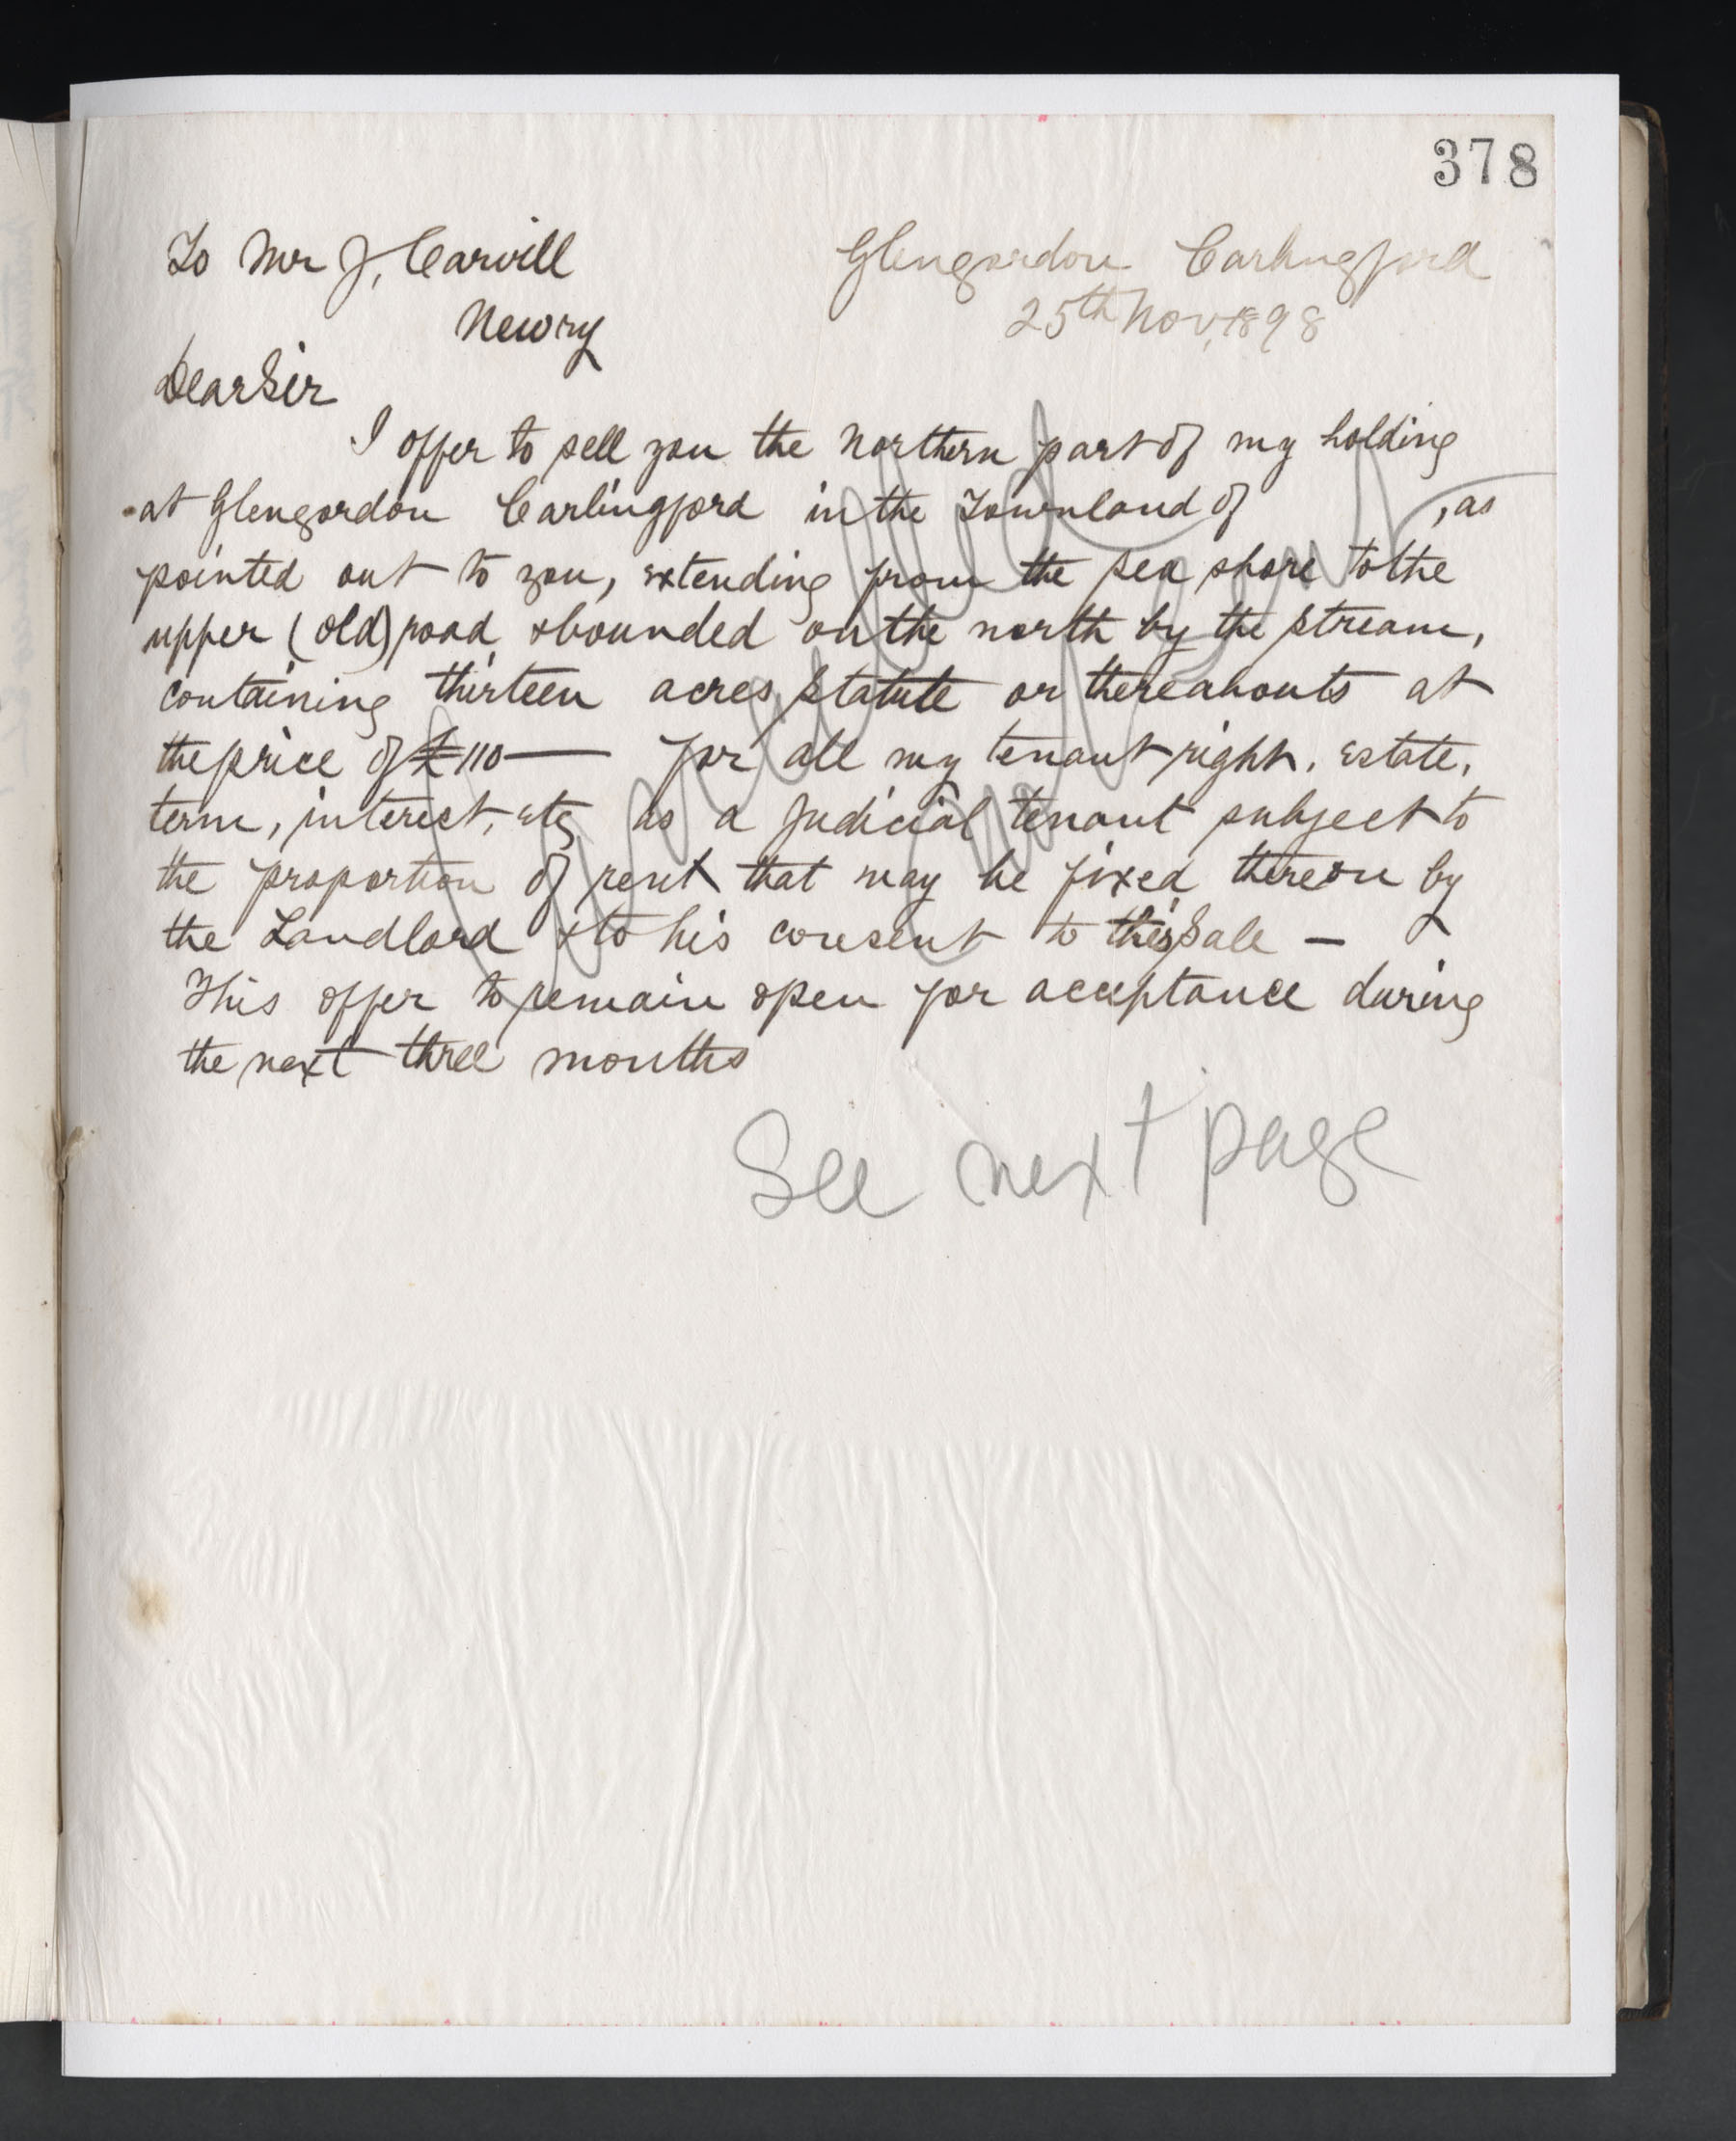 378
To Mr J, Carvill Glengordon Carlingford
Newry 25th Nov, 1898
Dear Sir
I offer to sell you the Northern part of my holding
at Glengordon Carlingford in the Townland of , as
pointed out to you, extending from the sea shore to the
upper (old) road, & bounded on the north by the stream,
containing thirteen acres statute or thereabouts at
the price of £110 — for all my tenant right, estate,
term, interest, etc as a judicial tenant subject to
the proportion of rent that may be fixed thereon by
the Landlord & to his consent to this Sale —
This offer to remain open for acceptance during
the next three months
See next page